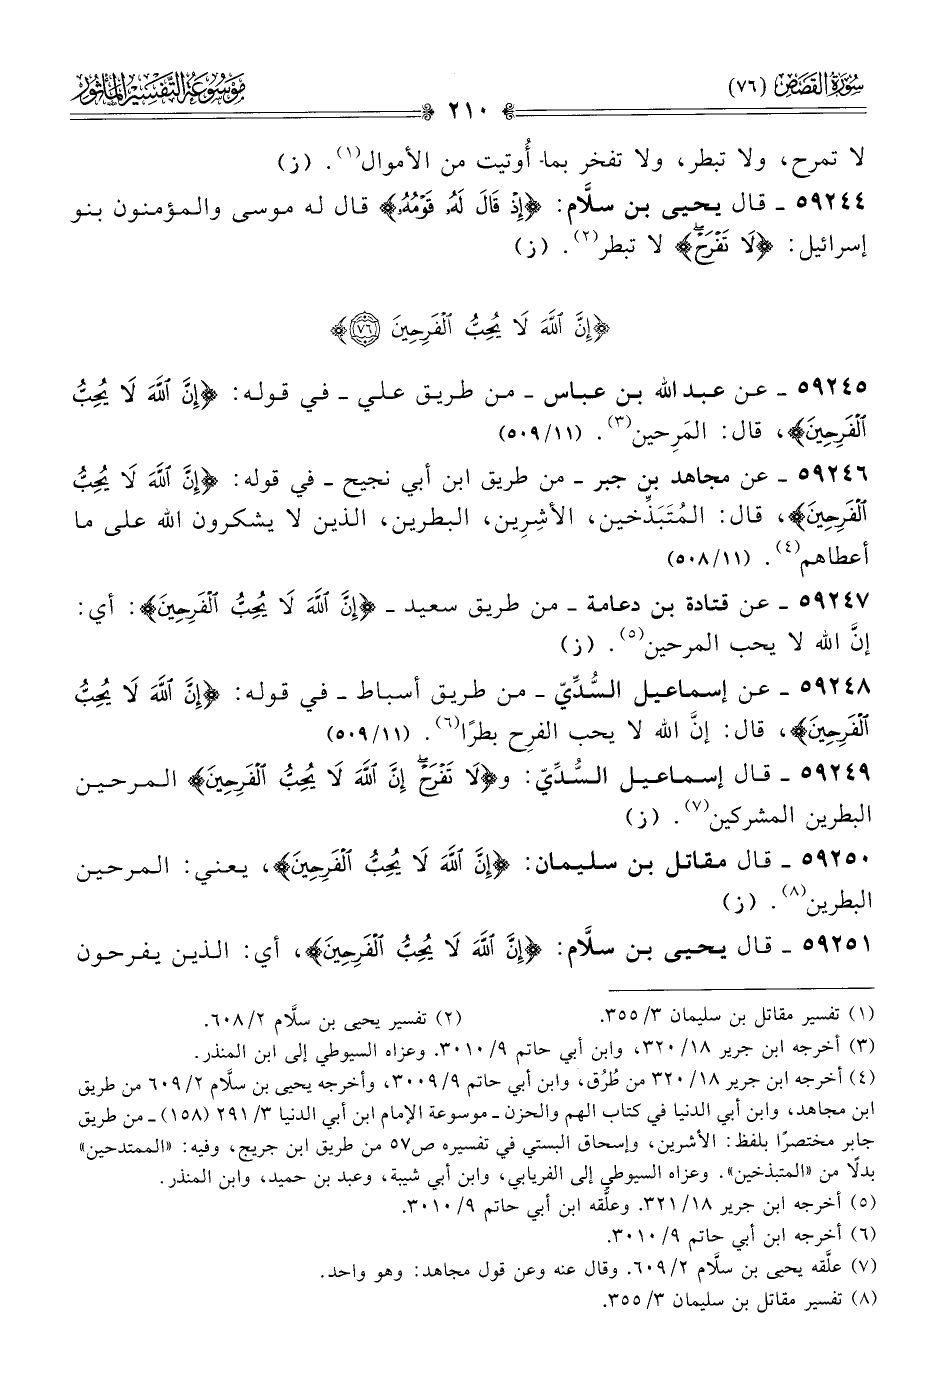 سُورَةُ القَصَصِ (٧٦)
٢١٠
مَوْسُوعَةُ التَّفْسِيرِ المَأْثُور
لا تمرح، ولا تبطر، ولا تفخر بما أُوتيت من الأموال(١). (ز)
٥٩٢٤٤ ـ قال يحيى بن سلَّام: ﴿إِذْ قَالَ لَهُۥ قَوْمُهُۥ﴾ قال له موسى والمؤمنون بنو
إسرائيل: ﴿لَا تَفْرَحْۖ﴾ لا تبطر(٢). (ز)
﴿إِنَّ ٱللَّهَ لَا يُحِبُّ ٱلْفَرِحِينَ ٧٦﴾
٥٩٢٤٥ ـ عن عبد الله بن عباس ـ من طريق علي ـ في قوله: ﴿إِنَّ ٱللَّهَ لَا يُحِبُّ
ٱلْفَرِحِينَ﴾، قال: المَرِحين(٣). (٥٠٩/١١)
٥٩٢٤٦ ـ عن مجاهد بن جبر ـ من طريق ابن أبي نجيح ـ في قوله: ﴿إِنَّ ٱللَّهَ لَا يُحِبُّ
ٱلْفَرِحِينَ﴾، قال: المُتَبَذِّخين، الأشِرِين، البطرين، الذين لا يشكرون الله على ما
أعطاهم(٤). (٥٠٨/١١)
٥٩٢٤٧ ـ عن قتادة بن دعامة ـ من طريق سعيد ـ ﴿إِنَّ ٱللَّهَ لَا يُحِبُّ ٱلْفَرِحِينَ﴾: أي:
إنَّ الله لا يحب المرحين(٥). (ز)
٥٩٢٤٨ ـ عن إسماعيل السُّدِّيّ ـ من طريق أسباط ـ في قوله: ﴿إِنَّ ٱللَّهَ لَا يُحِبُّ
ٱلْفَرِحِينَ﴾، قال: إنَّ الله لا يحب الفرِح بطرًا(٦). (٥٠٩/١١)
٥٩٢٤٩ ـ قال إسماعيل السُّدِّيّ: و﴿لَا تَفْرَحْۖ إِنَّ ٱللَّهَ لَا يُحِبُّ ٱلْفَرِحِينَ﴾ المرحين
البطرين المشركين(٧). (ز)
٥٩٢٥٠ ـ قال مقاتل بن سليمان: ﴿إِنَّ ٱللَّهَ لَا يُحِبُّ ٱلْفَرِحِينَ﴾، يعني: المرحين
البطرين(٨). (ز)
٥٩٢٥١ ـ قال يحيى بن سلَّام: ﴿إِنَّ ٱللَّهَ لَا يُحِبُّ ٱلْفَرِحِينَ﴾، أي: الذين يفرحون
(١) تفسير مقاتل بن سليمان ٣/ ٣٥٥. (٢) تفسير يحيى بن سلَّام ٢/ ٦٠٨.
(٣) أخرجه ابن جرير ١٨/ ٣٢٠، وابن أبي حاتم ٩/ ٣٠١٠. وعزاه السيوطي إلى ابن المنذر.
(٤) أخرجه ابن جرير ١٨/ ٣٢٠ من طُرُق، وابن أبي حاتم ٩/ ٣٠٠٩، وأخرجه يحيى بن سلَّام ٢/ ٦٠٩ من طريق
ابن مجاهد، وابن أبي الدنيا في كتاب الهم والحزن ـ موسوعة الإمام ابن أبي الدنيا ٣/ ٢٩١ (١٥٨) ـ من طريق
جابر مختصرًا بلفظ: الأشرين، وإسحاق البستي في تفسيره ص٥٧ من طريق ابن جريج، وفيه: «الممتدحين»
بدلًا من «المتبذخين». وعزاه السيوطي إلى الفريابي، وابن أبي شيبة، وعبد بن حميد، وابن المنذر.
(٥) أخرجه ابن جرير ١٨/ ٣٢١. وعلَّقه ابن أبي حاتم ٩/ ٣٠١٠.
(٦) أخرجه ابن أبي حاتم ٩/ ٣٠١٠.
(٧) علَّقه يحيى بن سلَّام ٢/ ٦٠٩. وقال عنه وعن قول مجاهد: وهو واحد.
(٨) تفسير مقاتل بن سليمان ٣/ ٣٥٥.